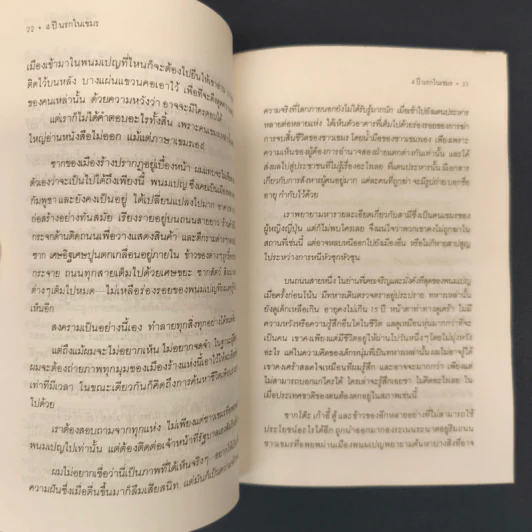 22 • 4 ปีนรกในเขมร
เมืองเข้ามาในพนมเปญที่ไหนก็จะต้องไปยืนให้เขาอ่าน
ติดไว้บนหลัง บางแผ่นแขวนคอเอาไว้ เพื่อที่จะดึงดูดความ
ของคนเหล่านั้น ด้วยความหวังว่า อาจจะมีใครตอบได้
แต่เราก็ไม่ได้คำตอบอะไรทั้งสิ้น เพราะคนเขมร
ใหญ่อ่านหนังสือไม่ออก แม้แต่ภาษาเขมรเอง
ซากของเมืองร้างปรากฏอยู่เบื้องหน้า ผมแทบจะไม่เชื่อ
ตัวเองว่าจะเป็นไปได้ถึงเพียงนี้ พนมเปญ ซึ่งเคยเป็นเมือง
กัมพูชา และยังคงเป็นอยู่ ได้เปลี่ยนแปลงไปมาก ซากตึก
ก่อสร้างอย่างทันสมัย เรียงรายอยู่บนถนนสายยาว ร้านค้า
กระจกด้านติดถนนเพื่อวางแสดงสินค้า และตึกรามต่างๆ
ซาก เศษอิฐเศษปูนตกเกลื่อนอยู่ภายใน ข้าวของต่างๆ
กระจาย ถนนทุกสายเต็มไปด้วยเศษขยะ ซากสัตว์
ต่างๆเต็มไปหมด—ไม่เหลือร่องรอยของพนมเปญที่ผมเคยรู้
เห็นอีก
สงครามเป็นอย่างนี้เอง ทำลายทุกสิ่งทุกอย่างได้
แต่ถึงแม้ผมจะไม่อยากเห็น ไม่อยากจดจำ ในฐานะ
ผมจะต้องถ่ายภาพทุกมุมของเมืองร้างแห่งนี้เอาไว้ให้
เท่าที่มีเวลา ในขณะเดียวกันก็คิดถึงการค้นหาชีวิต
ไปด้วย
เราต้องสอบถามจากทุกแห่ง ไม่เพียงแต่ชาวเขมร
พนมเปญไปเท่านั้น แต่ต้องติดต่อเจ้าหน้าที่รัฐบาล
ผมไม่อยากเชื่อว่านี่เป็นภาพที่ได้เห็นจริงๆ
ความฝันซึ่งเมื่อตื่นขึ้นมาก็ลืมเสียสนิท แต่มันก็เป็น
4 ปีนรกในเขมร • 23
ความจริงที่โลกภายนอกยังไม่ได้รับรู้มากนัก เมื่อเข้าไปยังแดนประหาร
หลายต่อหลายแห่ง ได้เห็นตัวอาคารที่เต็มไปด้วยร่องรอยของการฆ่า
การจบสิ้นชีวิตของชาวเขมร โดยน้ำมือของชาวเขมรเอง เพียงเพราะ
ความเห็นของผู้ต้องการอำนาจสองฝ่ายแตกต่างกันเท่านั้น และได้
ส่งผลไปสู่ประชาชนที่ไม่รู้เรื่องอะไรเลย ที่แดนประหารนั้นมีเอกสาร
เกี่ยวกับการสังหารผู้คนอยู่มาก แต่ละคนที่ถูกฆ่า จะมีรูปถ่ายบอกชื่อ
อายุ กำกับไว้ด้วย
เราพยายามหารายละเอียดเกี่ยวกับสามีซึ่งเป็นคนเขมรของ
ผู้หญิงญี่ปุ่น แต่ก็ไม่พบใครเลย จึงแน่ใจว่าพวกเขาคงไม่ถูกฆ่าใน
สถานที่เช่นนี้ แต่อาจหลบหนีออกไปยังเมืองอื่น หรือไม่ก็ตายสาบสูญ
ไประหว่างการหนีหัวซุกหัวซุน
บนถนนสายหนึ่ง ในย่านที่เคยเจริญและมั่งคั่งที่สุดของพนมเปญ
เมื่อครั้งก่อนโน้น มีทหารเดินตรวจตราอยู่ประปราย ทหารเหล่านั้น
ยังดูเด็กเหลือเกิน อายุคงไม่เกิน 15 ปี หน้าตาท่าทางดุเศร้า ไม่มี
ความหวังหรือความรู้สึกอื่นใดในชีวิต แลดูเหมือนหุ่นมากกว่าที่จะ
เป็นคน เขาคงเพียงแต่มีชีวิตอยู่ให้ผ่านไปวันหนึ่งๆ โดยไม่มุ่งหวัง
อะไร แต่ในความคิดของเด็กหนุ่มที่เป็นทหารเหล่านั้น ผมไม่อาจรู้ได้
เขาคงเศร้าสลดใจเหมือนที่ผมรู้สึก และอาจจะมากกว่า เพียงแต่
ไม่สามารถบอกแก่ใครได้ ใครเล่าจะรู้สึกจอยชา ไม่คิดอะไรเลย ใน
เมื่อประเทศชาติของตนต้องตกอยู่ในสภาพนี้
ซากโต๊ะ เก้าอี้ ตู้ และข้าวของอีกหลายอย่างที่ไม่สามารถใช้
ประโยชน์อะไรได้อีก ถูกนำออกมากองระเนระนาดอยู่ริมถนน
ชาวเขมรที่อพยพผ่านเมืองพนมเปญพยายามค้นหาบางสิ่งที่อาจ